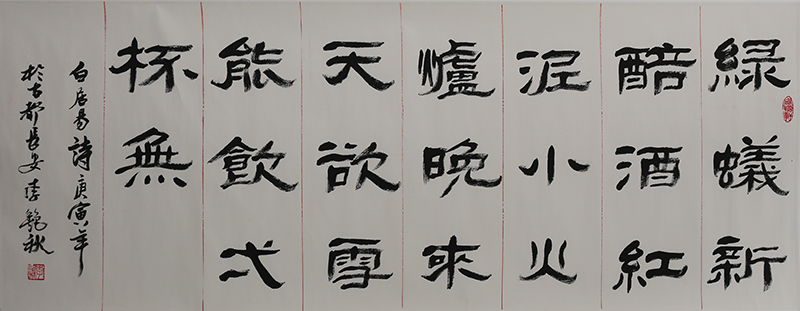 綠蟻新
醅酒紅
泥小火
爐晚來
天欲雪
能飲弌
杯無
白居易詩庚寅年
於古都長安李秋